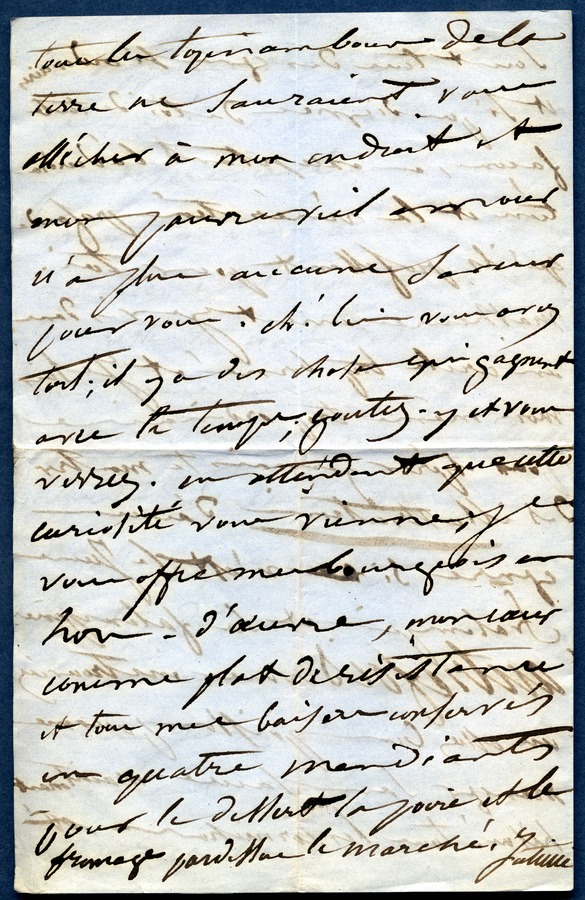 tous les topinambours de la
terre ne sauraient vous
allécher à mon endroit et
mon pauvre vieil amour
n'a plus aucune saveur
pour vous. eh! bien vous avez
tort; il y a des choses qui gagnent
avec le temps; goutez-y et vous
verrez. en attendant que cette
curiosité vous vienne, je
vous offre mes bourgeois en
hors-d'œuvre, mon cœur
comme plat de résistance
et tous mes baisers conservés
en quatre mendiants
pour le dessert la poire et le
fromage pardessus le marché.